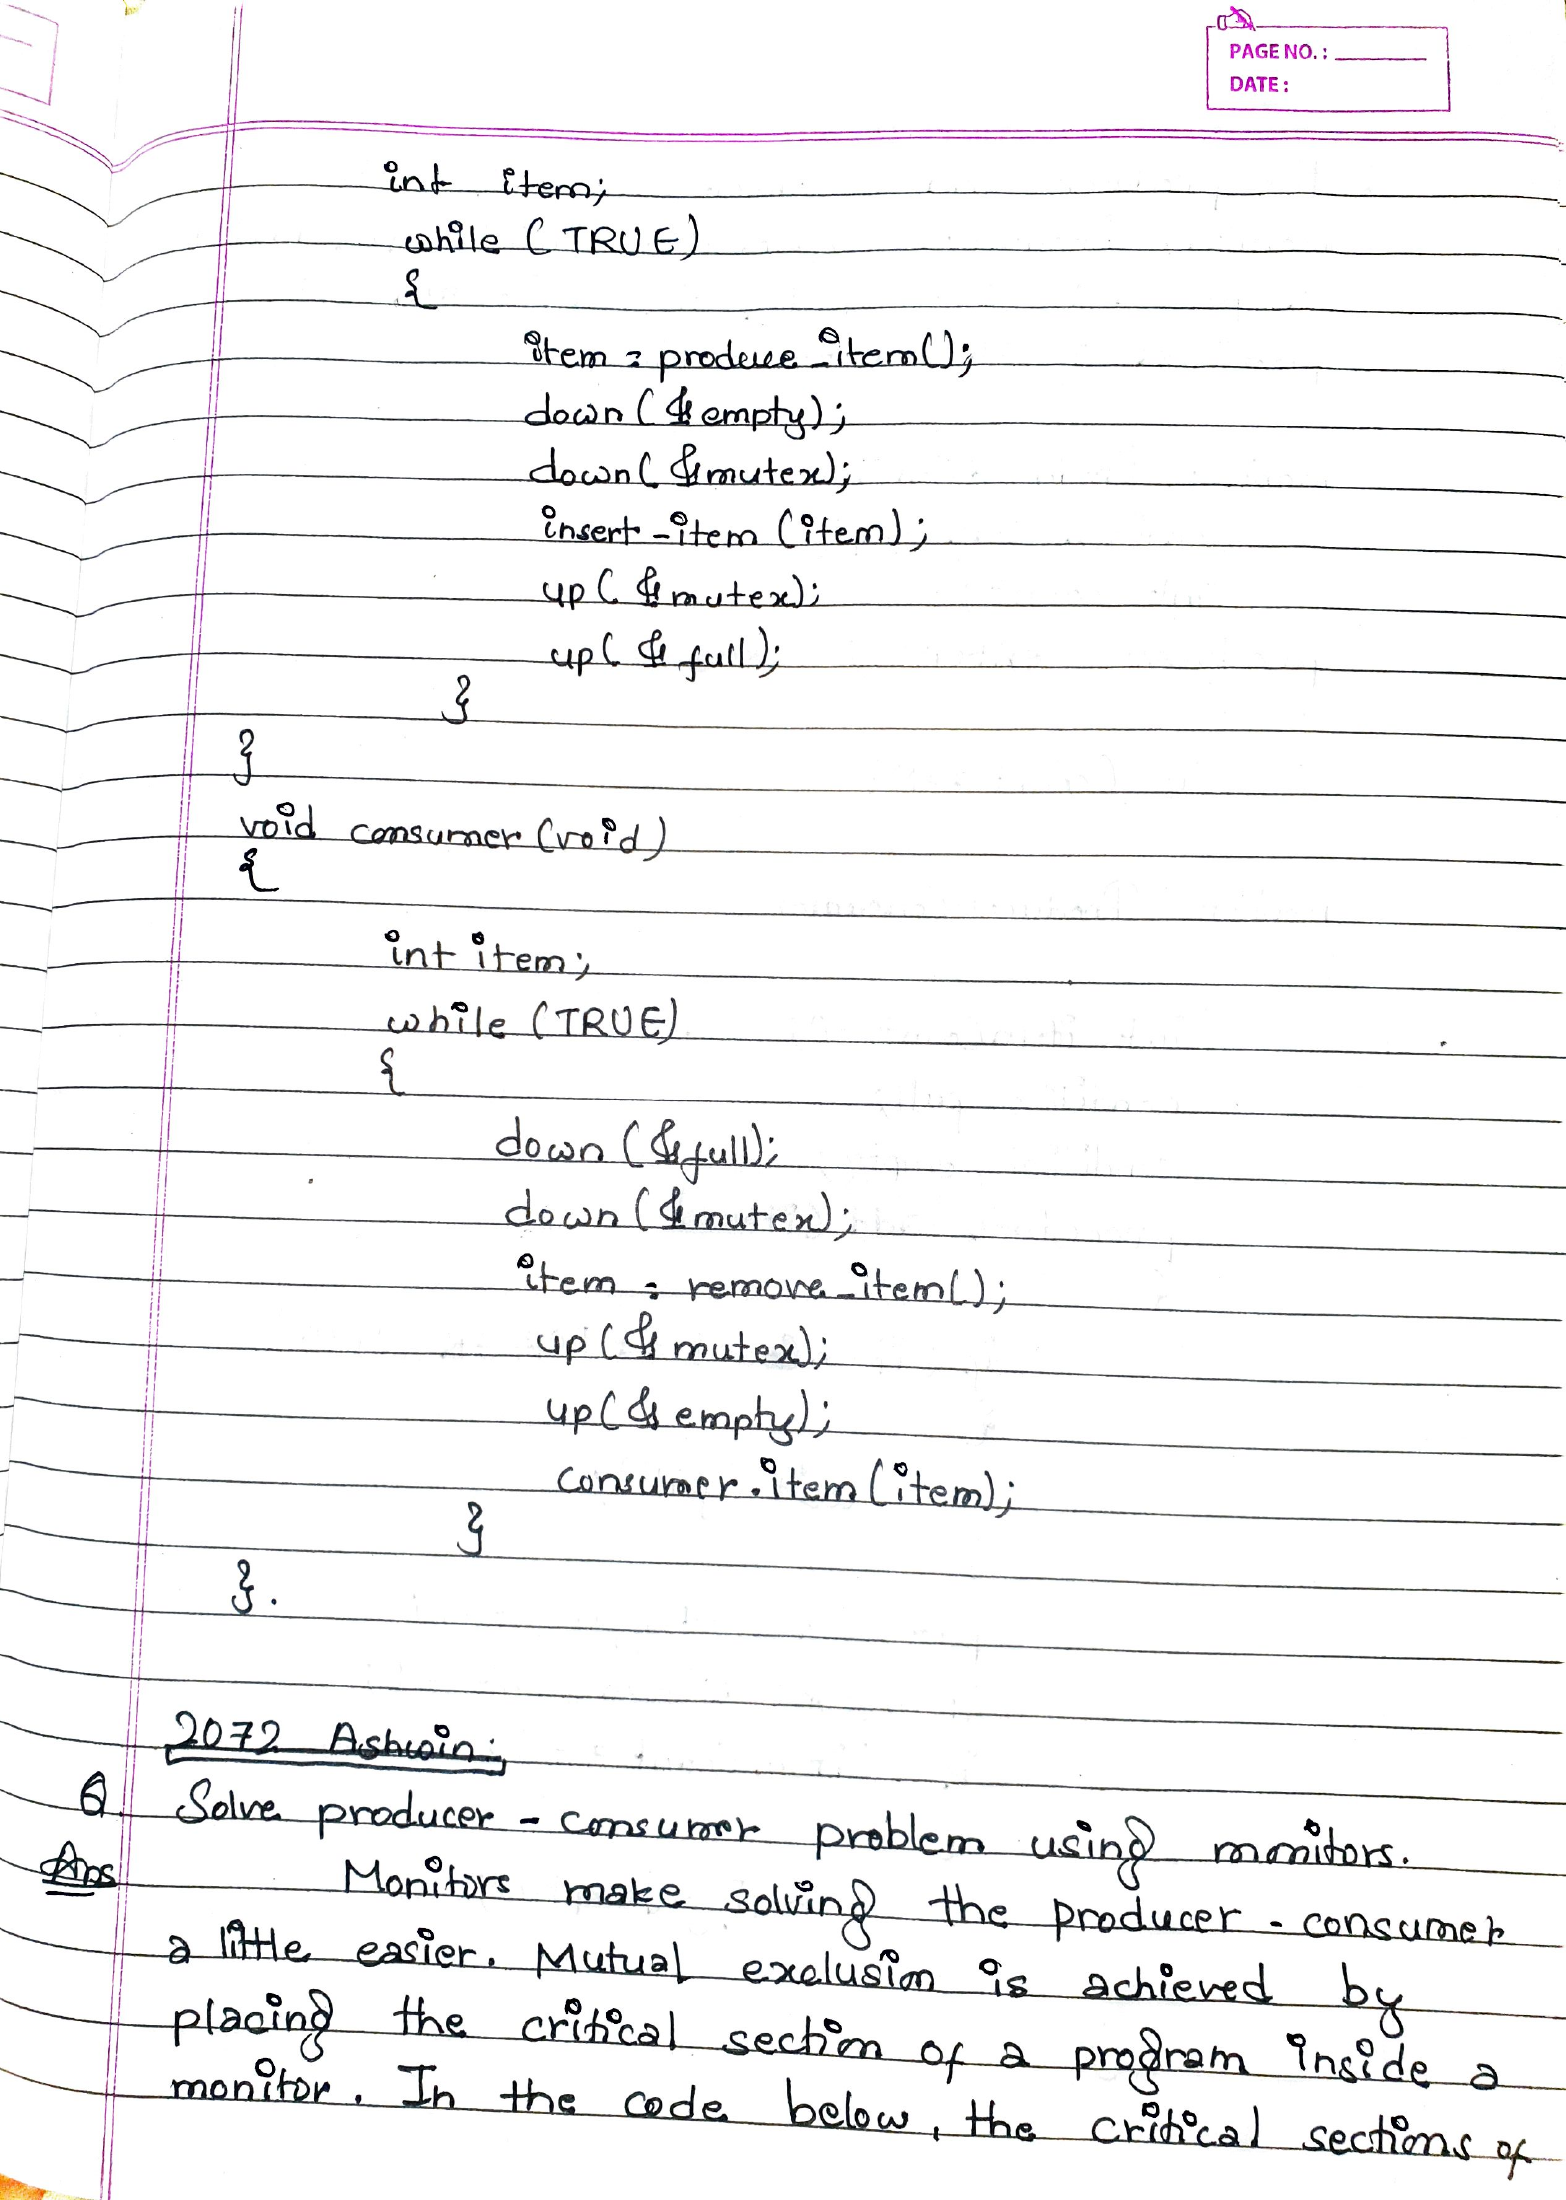 PAGE NO. :
DATE :
int item;
while (TRUE)
{
item = produce_item();
down(&empty);
down(&mutex);
insert-item (item);
up(&mutex);
up(&full);
}
}
void consumer (void)
{
int item;
while (TRUE)
{
down (&full);
down (&mutex);
item = remove_item();
up(&mutex);
up(&empty);
consumer.item (item);
}
}.
2072 Ashwin:
Q. Solve producer - consumer problem using monitors.
Ans Monitors make solving the producer - consumer
a little easier. Mutual exclusion is achieved by
placing the critical section of a program inside a
monitor. In the code below, the critical sections of